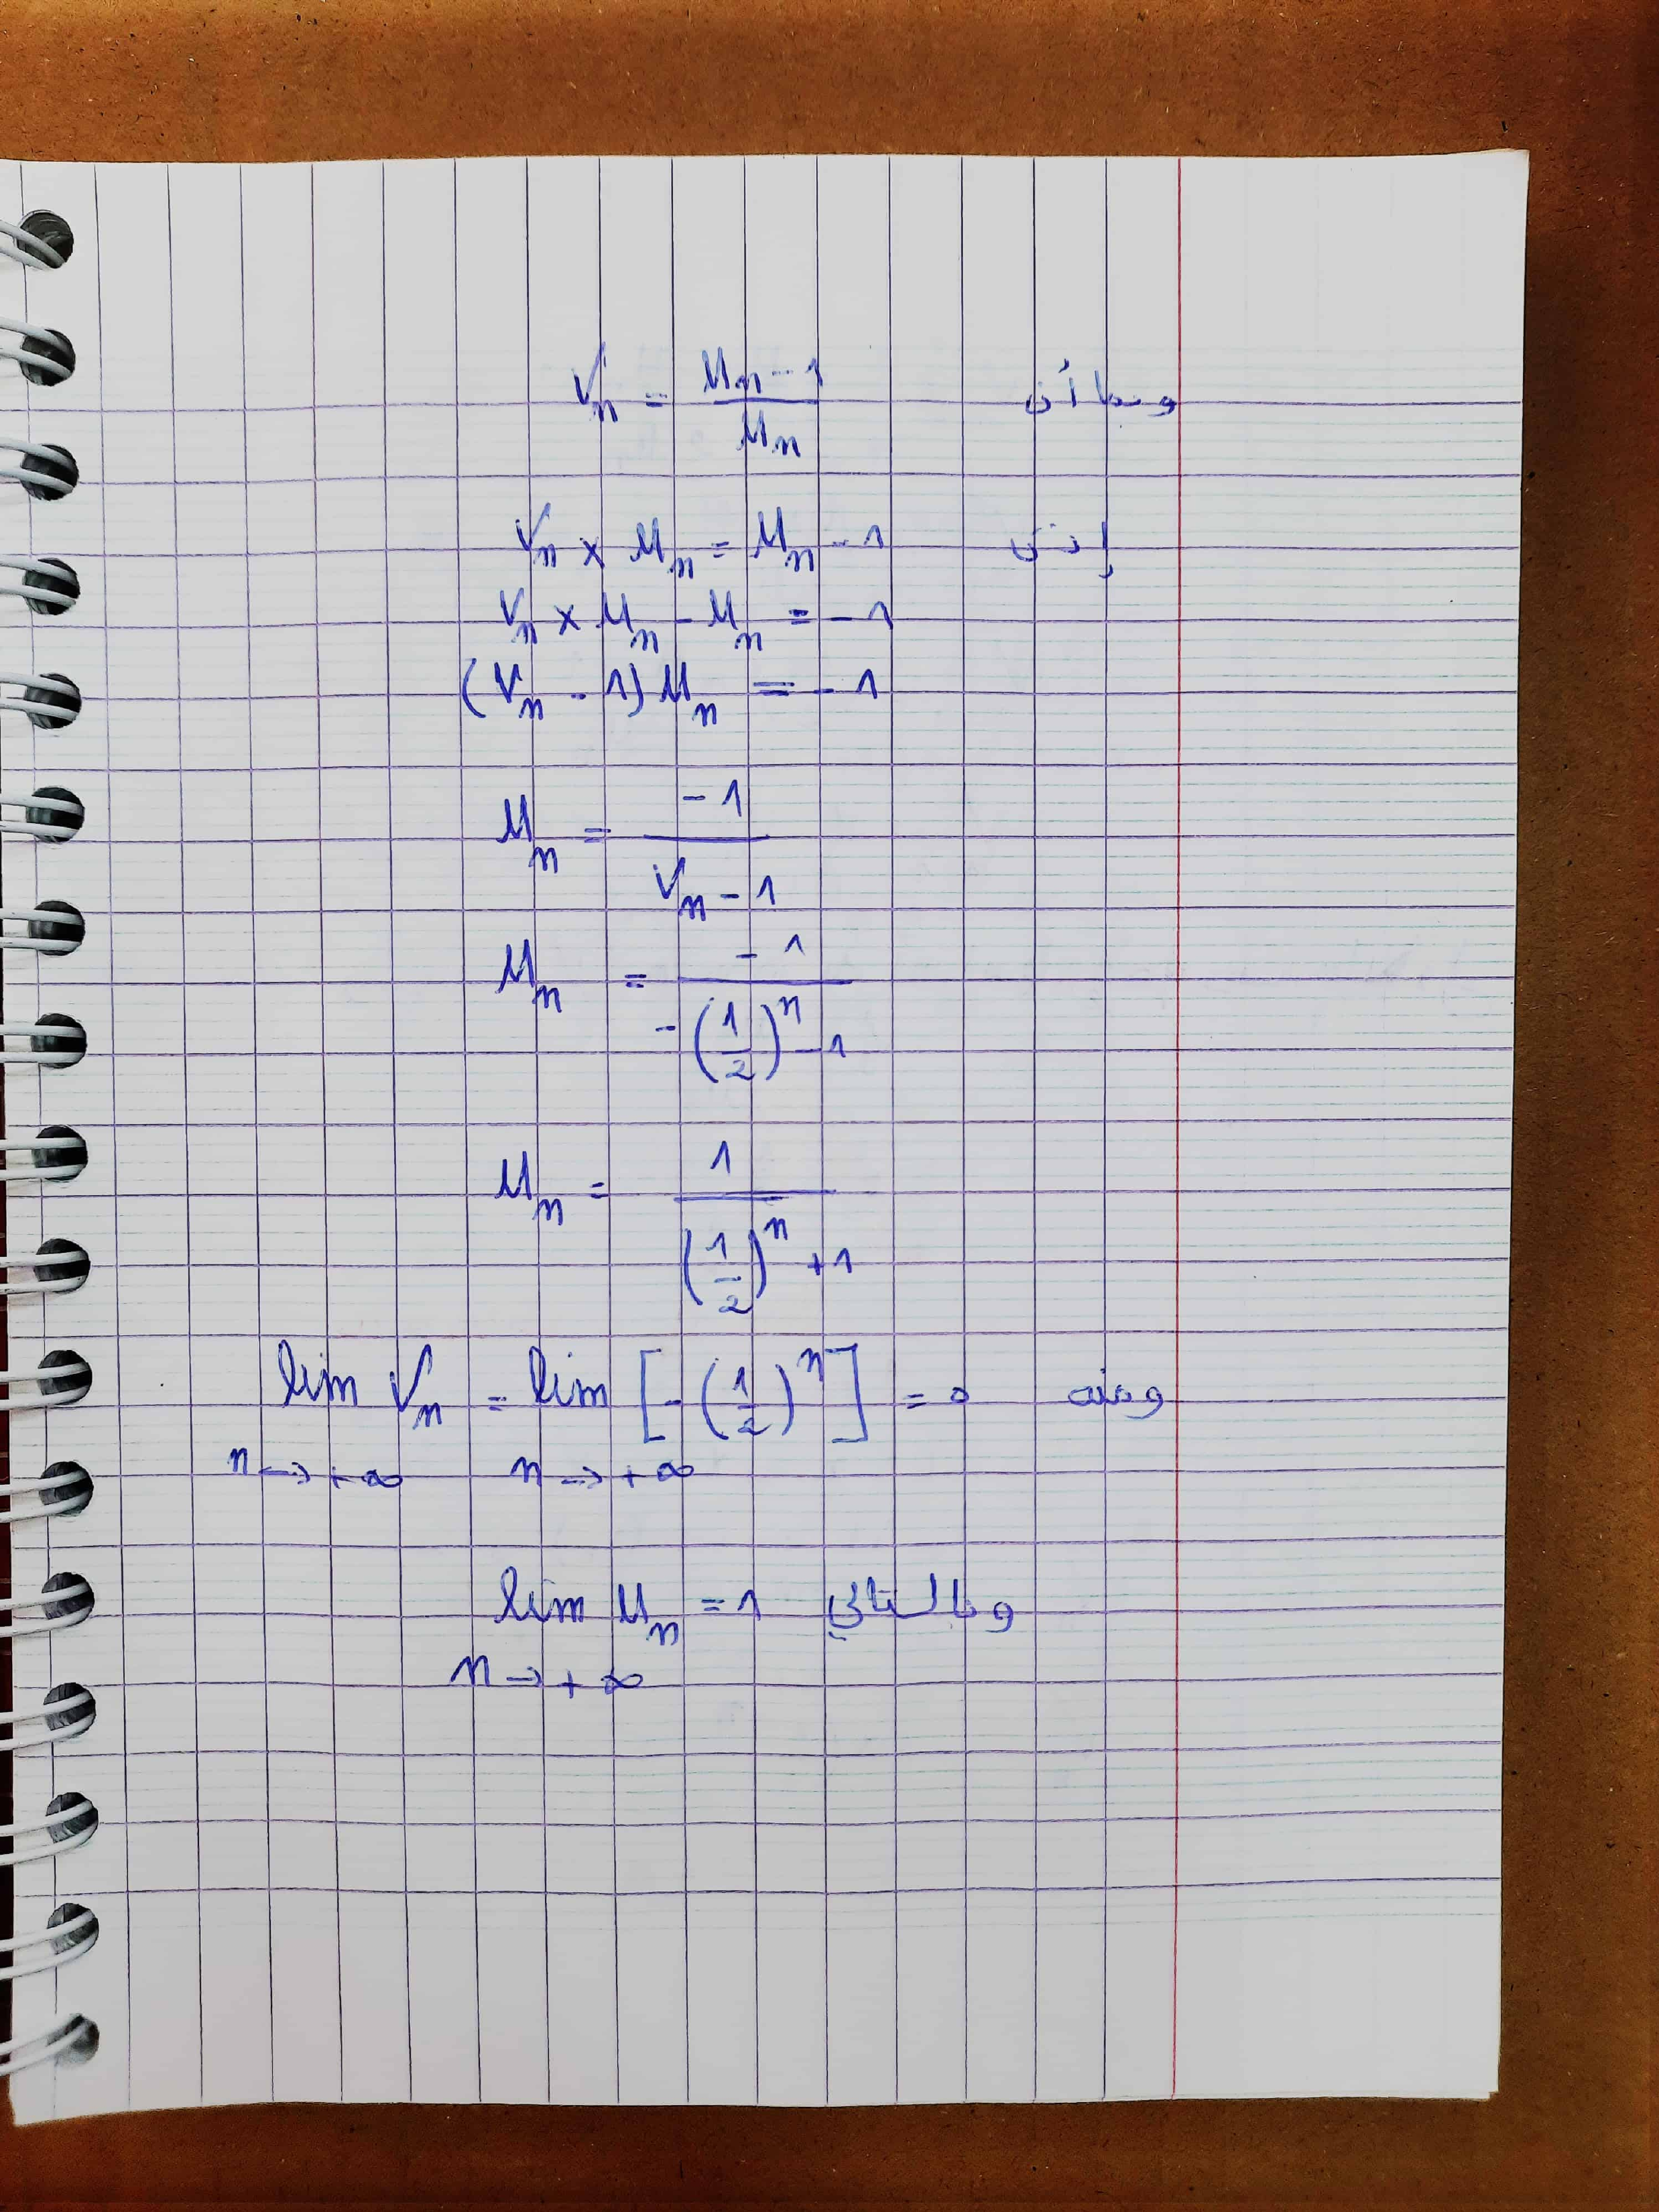 وبما أن Vn = (Un - 1) / Un
إذن Vn × Un = Un - 1
Vn × Un - Un = - 1
(Vn - 1) Un = - 1
Un = - 1 / (Vn - 1)
Un = - 1 / (-(1/2)^n - 1)
Un = 1 / ((1/2)^n + 1)
ومنه lim Vn = lim [-(1/2)^n] = 0
n → + ∞ n → + ∞
وبالتالي lim Un = 1
n → + ∞